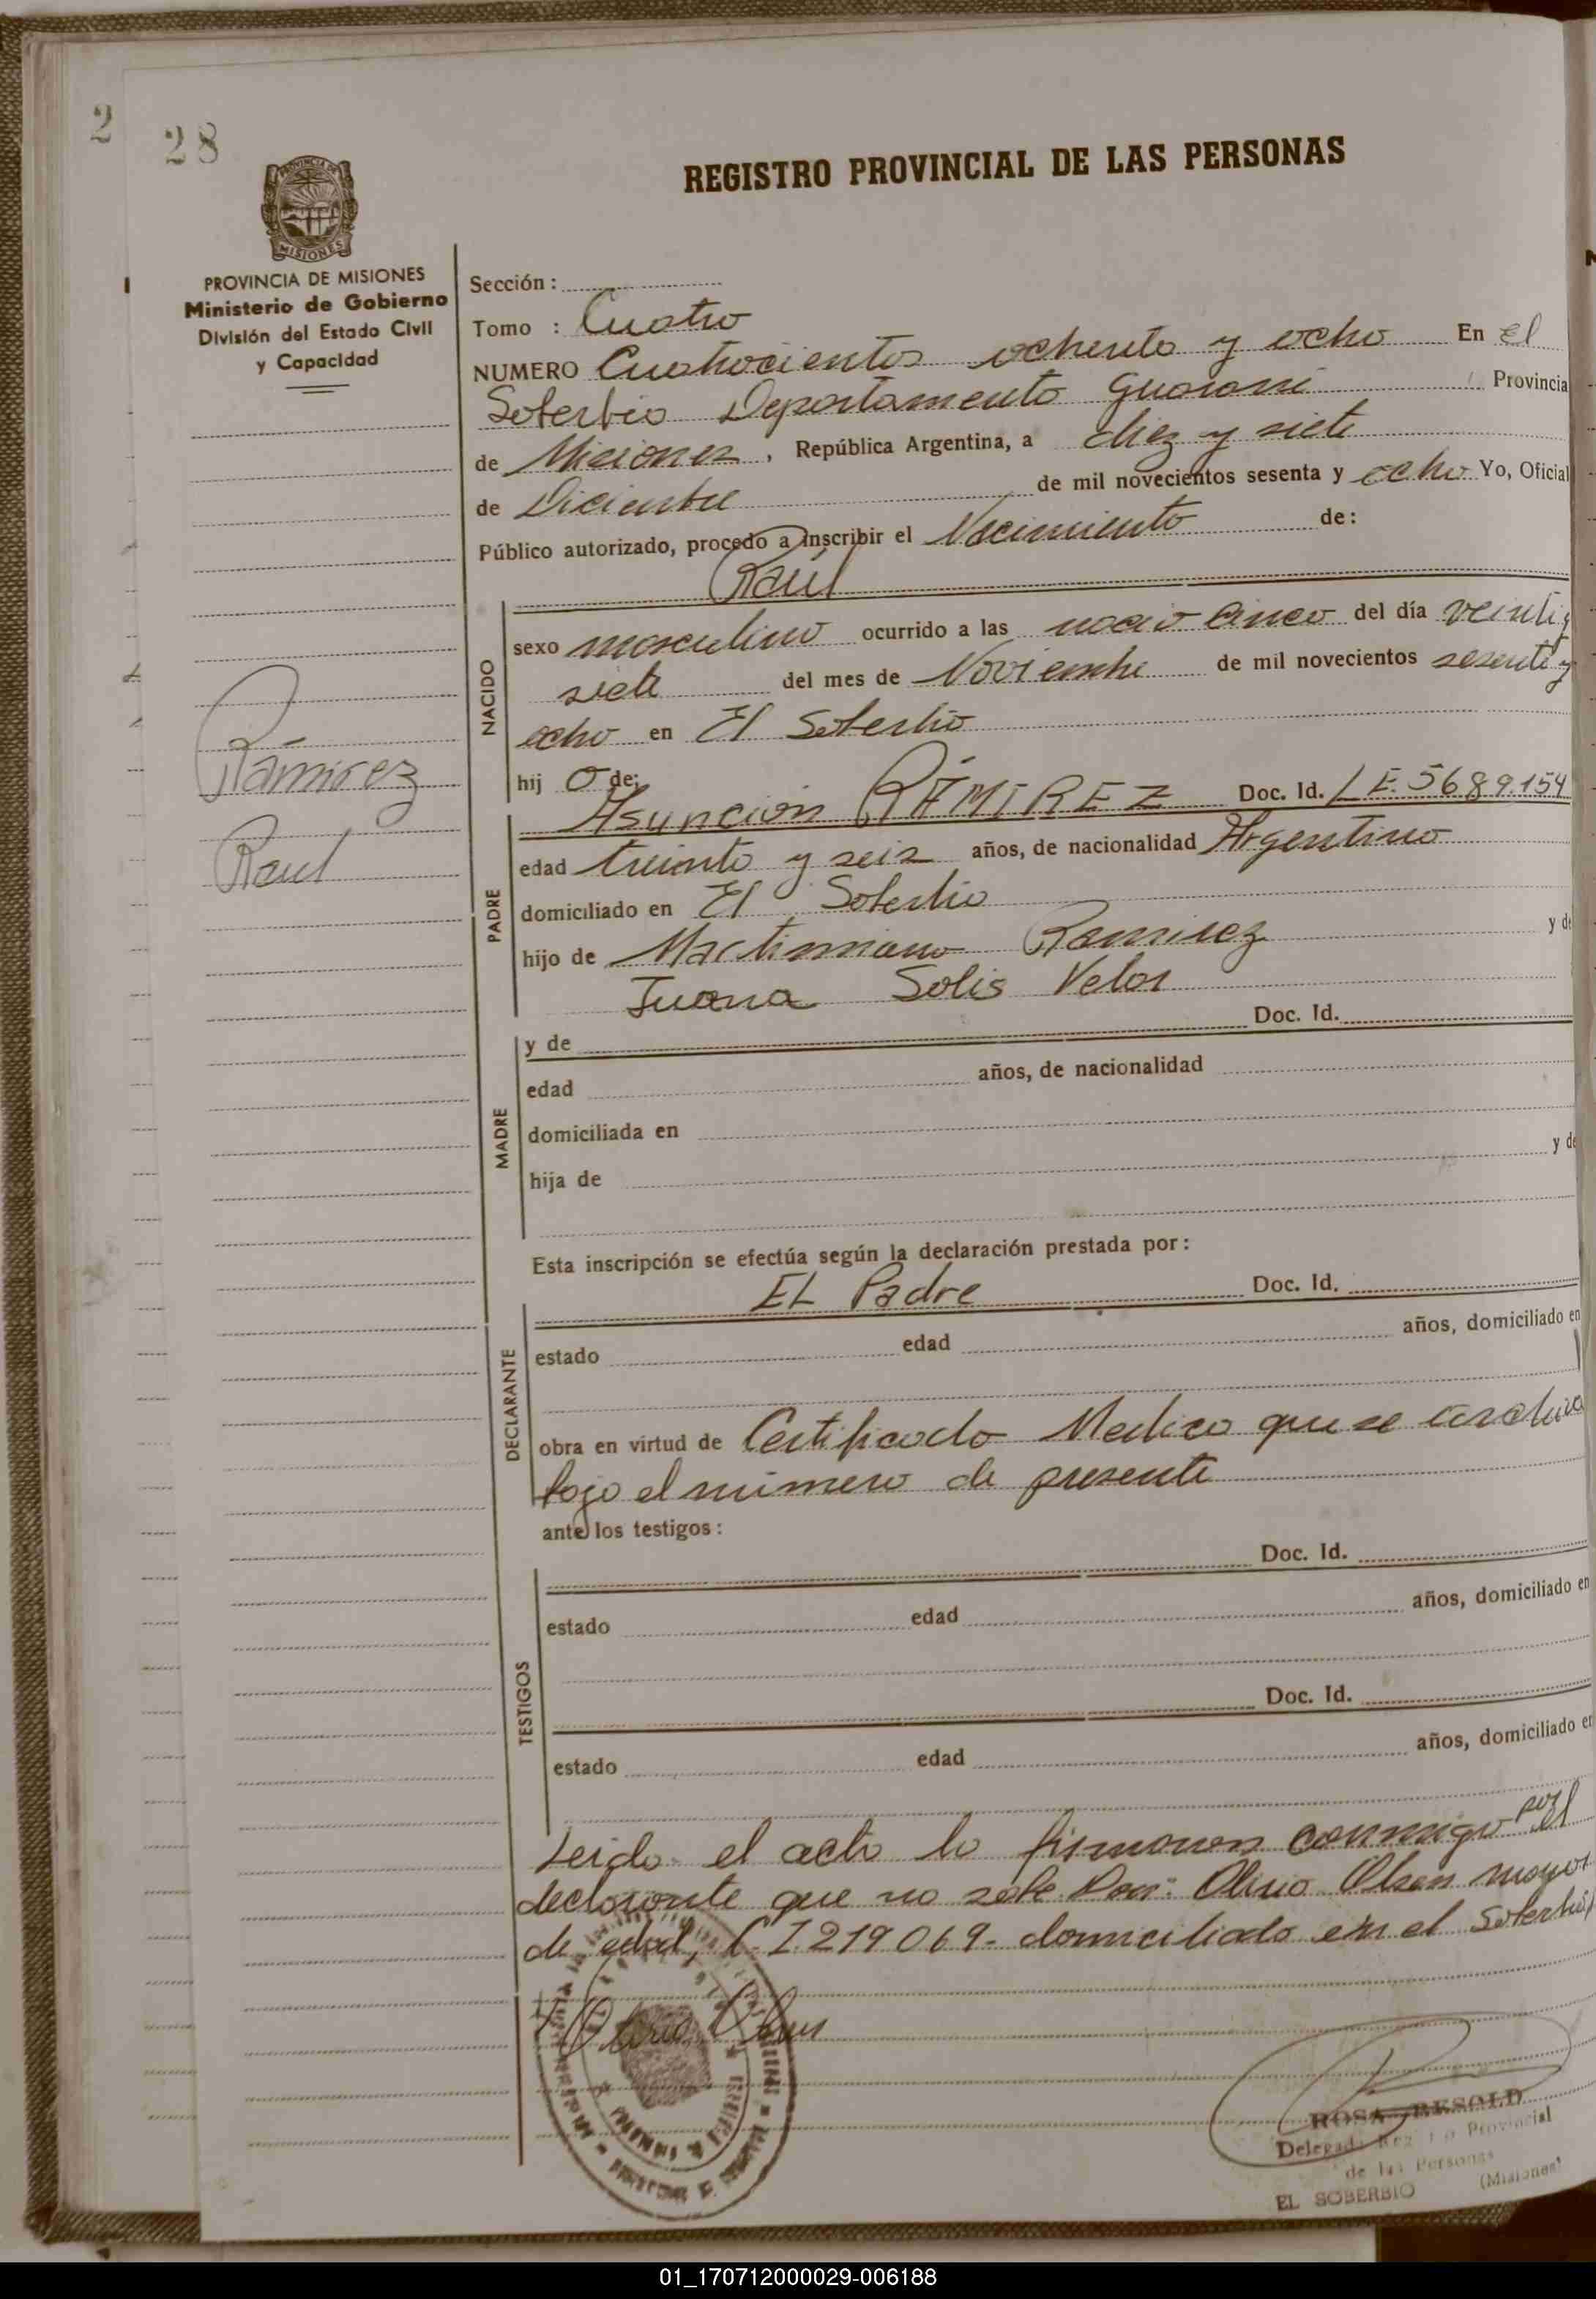 2 28
REGISTRO PROVINCIAL DE LAS PERSONAS
PROVINCIA DE MISIONES
MISIONES
PROVINCIA DE MISIONES
Ministerio de Gobierno
División del Estado Civil
y Capacidad
Sección :
Tomo : Cuatro
NUMERO Cuatrocientos ochenta y ocho En El
Soberbio Departamento Guarani Provincia
de Misiones , República Argentina, a diez y siete
de Diciembre de mil novecientos sesenta y ocho Yo, Oficial
Público autorizado, procedo a inscribir el Nacimiento de :
Raúl
NACIDO
sexo masculino ocurrido a las cinco del día veinti
siete del mes de Noviembre de mil novecientos sesenta y
ocho en El Soberbio
hij o de:
Ramírez
Raul
Asunción RAMIREZ Doc. Id. L E. 5689.154
PADRE
edad treinta y seis años, de nacionalidad Argentino
domiciliado en El Soberbio
hijo de Martimiano Ramirez y de
Juana Solis Velos
MADRE
y de Doc. Id.
edad años, de nacionalidad
domiciliada en
hija de y de
Esta inscripción se efectúa según la declaración prestada por :
EL Padre Doc. Id.
DECLARANTE
estado edad años, domiciliado en
obra en virtud de Certificado Medico que se archiva
bajo el número de presente
ante los testigos :
TESTIGOS
Doc. Id.
estado edad años, domiciliado en
Doc. Id.
estado edad años, domiciliado en
Leido el acto lo firmaron conmigo por el
declarante que no sabe Don: Olivio Olsen mayor
de edad, C I. 219069- domiciliado en el Soberbio
ROSA RESOLD
Delegada Reg Provincial
de las Personas
EL SOBERBIO (Misiones)
01_170712000029-006188